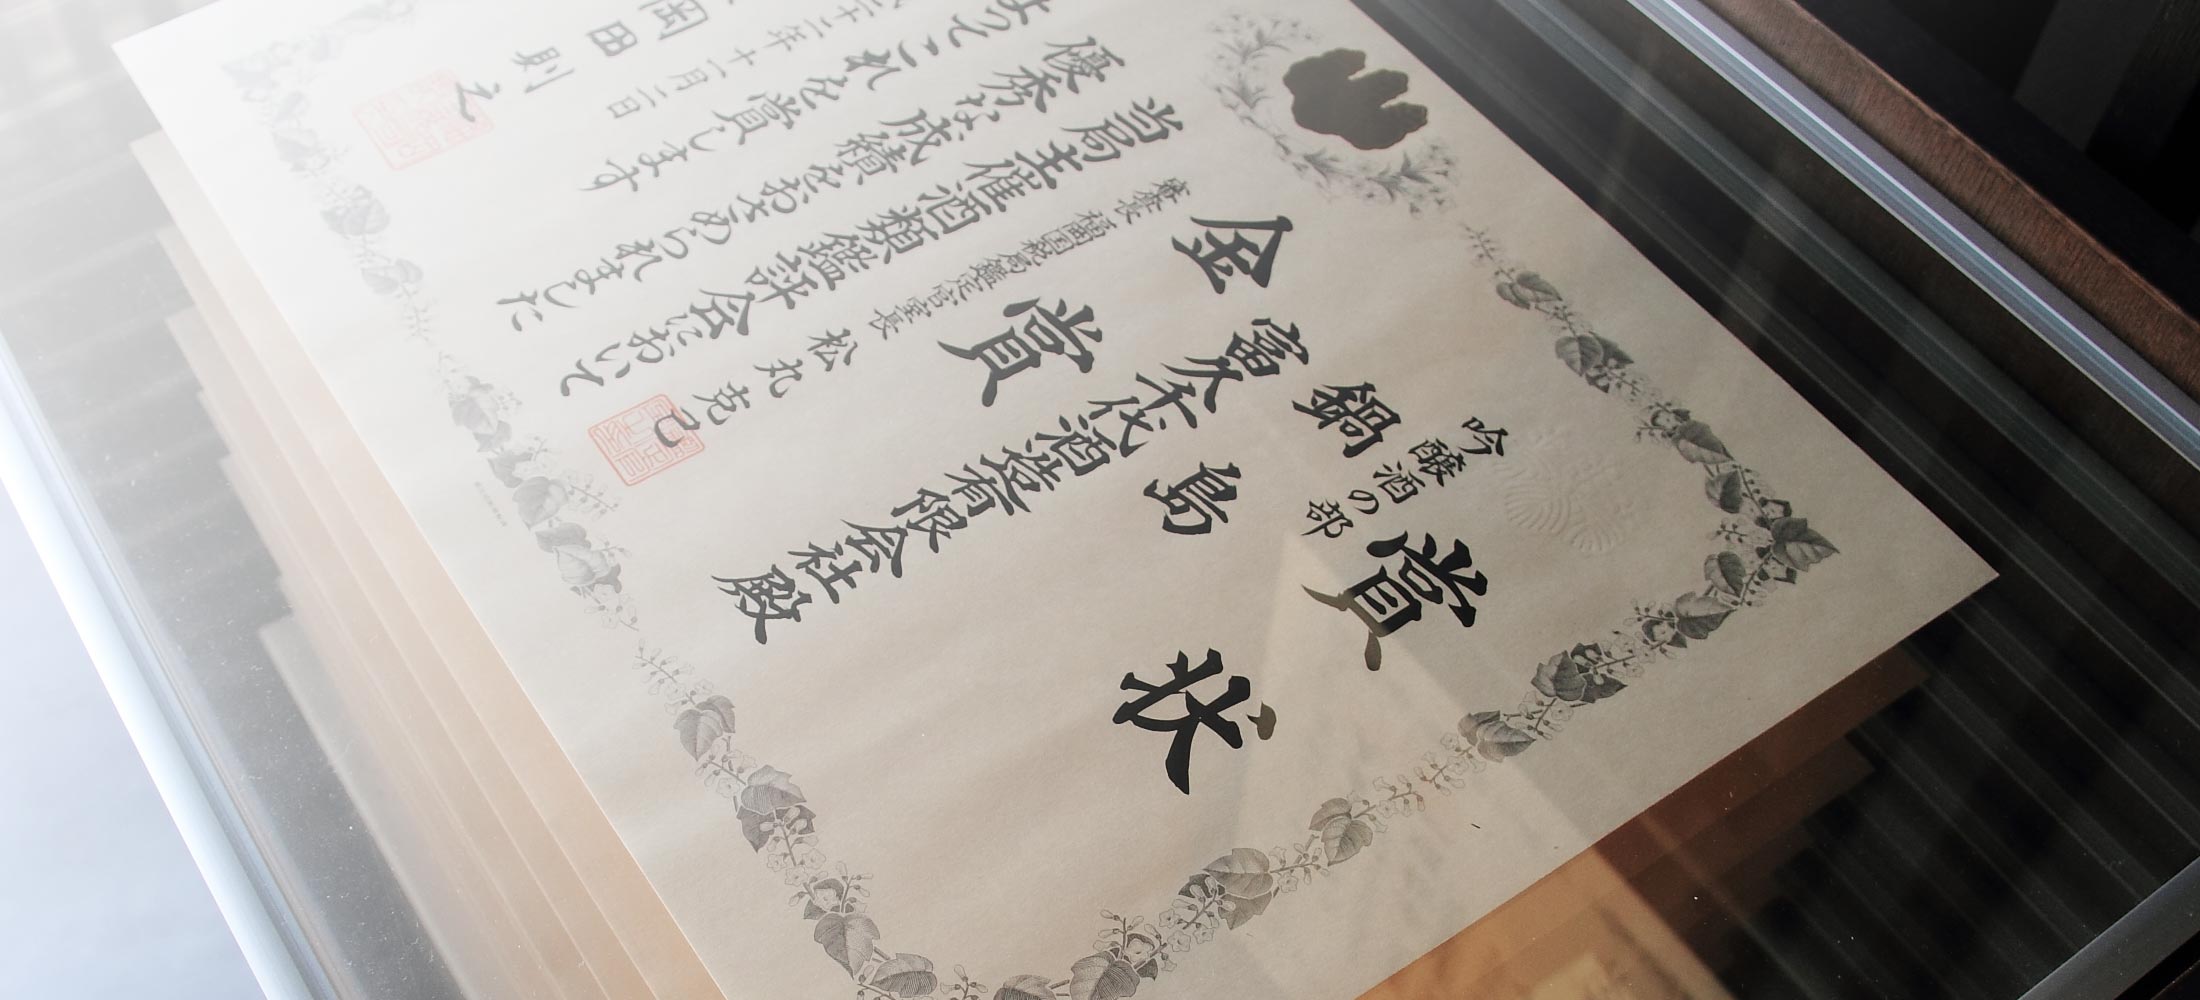 賞状
吟醸酒の部
鍋島
富久千代酒造有限会社殿
金賞
審査長 福岡国税局鑑定官室長 松丸克己
当局主催酒類鑑評会において
優秀な成績をおさめられました
よってこれを賞します
二十二年十一月二日
岡田則之